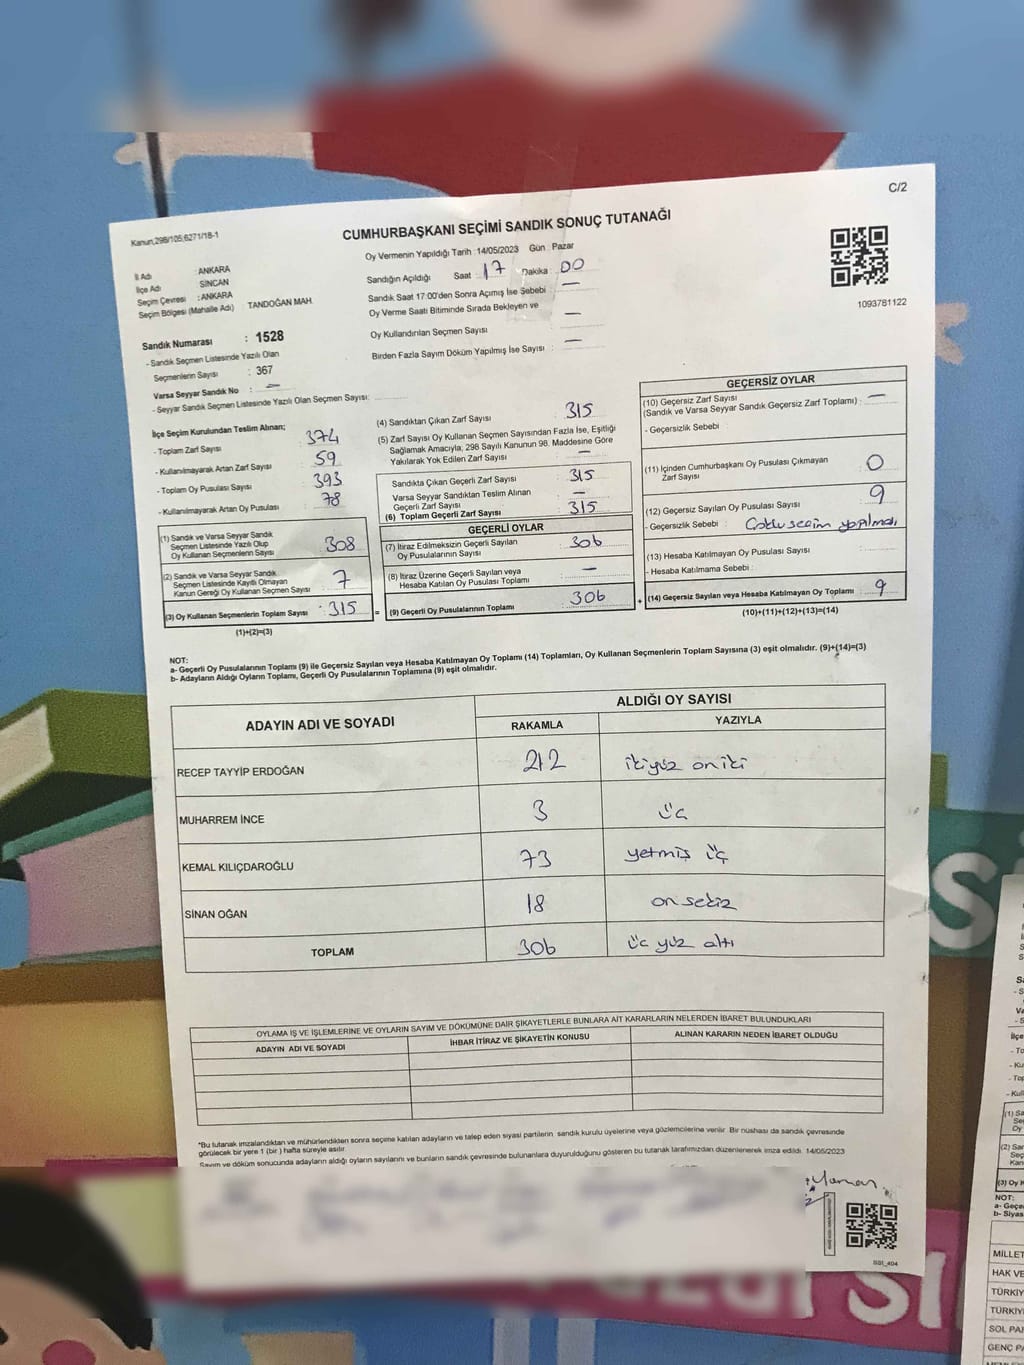 C/2
Kanun,298/105;6271/18-1
CUMHURBAŞKANI SEÇİMİ SANDIK SONUÇ TUTANAĞI
Oy Vermenin Yapıldığı Tarih : 14/05/2023 Gün : Pazar
İl Adı : ANKARA
İlçe Adı : SİNCAN
Seçim Çevresi : ANKARA
Seçim Bölgesi (Mahalle Adı) : TANDOĞAN MAH.
Sandığın Açıldığı Saat 17 Dakika : 00
Sandık Saat 17:00'den Sonra Açımış İse Sebebi : —
Oy Verme Saati Bitiminde Sırada Bekleyen ve
Oy Kullandırılan Seçmen Sayısı —
Birden Fazla Sayım Döküm Yapılmış İse Sayısı : —
1093781122
Sandık Numarası : 1528
- Sandık Seçmen Listesinde Yazılı Olan
Seçmenlerin Sayısı : 367
Varsa Seyyar Sandık No : —
- Seyyar Sandık Seçmen Listesinde Yazılı Olan Seçmen Sayısı:
İlçe Seçim Kurulundan Teslim Alınan;
- Toplam Zarf Sayısı 374
- Kullanılmayarak Artan Zarf Sayısı 59
- Toplam Oy Pusulası Sayısı 393
- Kullanılmayarak Artan Oy Pusulası 78
(1) Sandık ve Varsa Seyyar Sandık
Seçmen Listesinde Yazılı Olup
Oy Kullanan Seçmenlerin Sayısı 308
(2) Sandık ve Varsa Seyyar Sandık
Seçmen Listesinde Kayıtlı Olmayan
Kanun Gereği Oy Kullanan Seçmen Sayısı : 7
(3) Oy Kullanan Seçmenlerin Toplam Sayısı : 315
(1)+(2)=(3)
(4) Sandıktan Çıkan Zarf Sayısı 315
(5) Zarf Sayısı Oy Kullanan Seçmen Sayısından Fazla İse, Eşitliği
Sağlamak Amacıyla, 298 Sayılı Kanunun 98. Maddesine Göre
Yakılarak Yok Edilen Zarf Sayısı —
Sandıkta Çıkan Geçerli Zarf Sayısı 315
Varsa Seyyar Sandıktan Teslim Alınan
Geçerli Zarf Sayısı —
(6) Toplam Geçerli Zarf Sayısı 315
GEÇERLİ OYLAR
(7) İtiraz Edilmeksizin Geçerli Sayılan
Oy Pusulalarının Sayısı 306
(8) İtiraz Üzerine Geçerli Sayılan veya
Hesaba Katılan Oy Pusulası Toplamı —
= (9) Geçerli Oy Pusulalarının Toplamı 306 +
GEÇERSİZ OYLAR
(10) Geçersiz Zarf Sayısı
(Sandık ve Varsa Seyyar Sandık Geçersiz Zarf Toplamı) : —
- Geçersizlik Sebebi
(11) İçinden Cumhurbaşkanı Oy Pusulası Çıkmayan
Zarf Sayısı 0
(12) Geçersiz Sayılan Oy Pusulası Sayısı 9
- Geçersizlik Sebebi : Çoklu seçim yapılması
(13) Hesaba Katılmayan Oy Pusulası Sayısı
- Hesaba Katılmama Sebebi :
(14) Geçersiz Sayılan veya Hesaba Katılmayan Oy Toplamı : 9
(10)+(11)+(12)+(13)=(14)
NOT:
a- Geçerli Oy Pusulalarının Toplamı (9) ile Geçersiz Sayılan veya Hesaba Katılmayan Oy Toplamı (14) Toplamları, Oy Kullanan Seçmenlerin Toplam Sayısına (3) eşit olmalıdır. (9)+(14)=(3)
b- Adayların Aldığı Oyların Toplamı, Geçerli Oy Pusulalarının Toplamına (9) eşit olmalıdır.
ADAYIN ADI VE SOYADI ALDIĞI OY SAYISI
RAKAMLA YAZIYLA
RECEP TAYYİP ERDOĞAN 212 ikiyüz oniki
MUHARREM İNCE 3 üç
KEMAL KILIÇDAROĞLU 73 yetmiş üç
SİNAN OĞAN 18 on sekiz
TOPLAM 306 üç yüz altı
OYLAMA İŞ VE İŞLEMLERİNE VE OYLARIN SAYIM VE DÖKÜMÜNE DAİR ŞİKAYETLERLE BUNLARA AİT KARARLARIN NELERDEN İBARET BULUNDUKLARI
ADAYIN ADI VE SOYADI İHBAR İTİRAZ VE ŞİKAYETİN KONUSU ALINAN KARARIN NEDEN İBARET OLDUĞU
*Bu tutanak imzalandıktan ve mühürlendikten sonra seçime katılan adayların ve talep eden siyasi partilerin sandık kurulu üyelerine veya gözlemcilerine verilir. Bir nüshası da sandık çevresinde
görülecek bir yere 1 (bir) hafta süreyle asılır.
Sayım ve döküm sonucunda adayların aldığı oyların sayılarını ve bunların sandık çevresinde bulunanlara duyurulduğunu gösteren bu tutanak tarafımızdan düzenlenerek imza edildi. 14/05/2023
MİLLET
HAK VE
TÜRKİY
TÜRKİY
SOL PAR
GENÇ PA